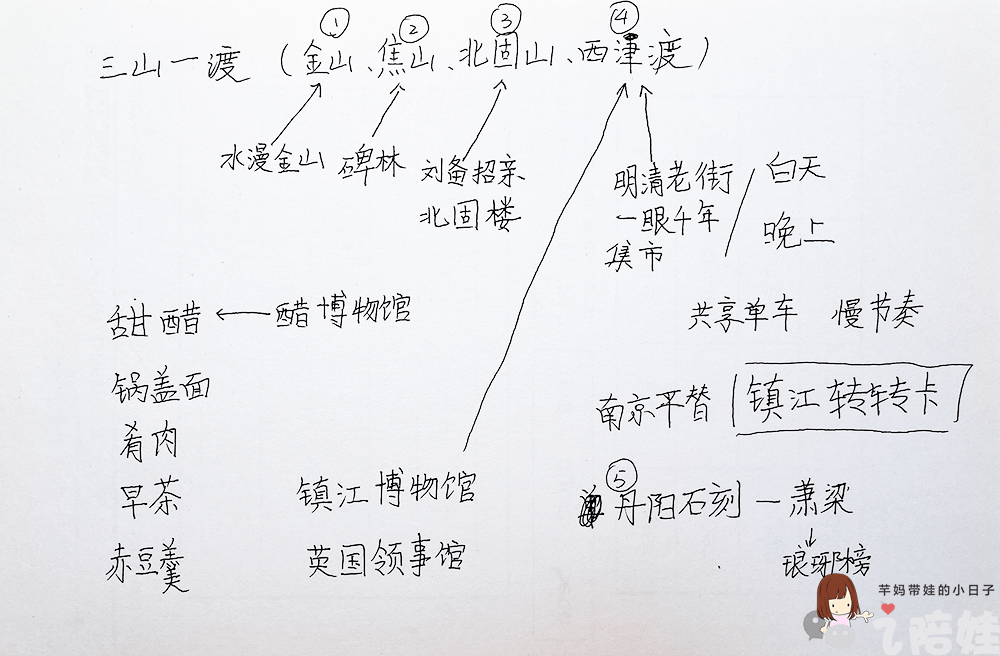 三山一渡（金山、焦山、北固山、西津渡）
① ② ③ ④
水漫金山 碑林 刘备招亲
北固楼
明清老街
一眼千年
集市
白天
晚上
甜醋 ← 醋博物馆
锅盖面
肴肉
早茶
赤豆羹
镇江博物馆
英国领事馆
共享单车 慢节奏
南京平替 镇江转转卡
⑤
丹阳石刻 — 萧梁
琅琊榜
芊妈带娃的小日子
陪娃